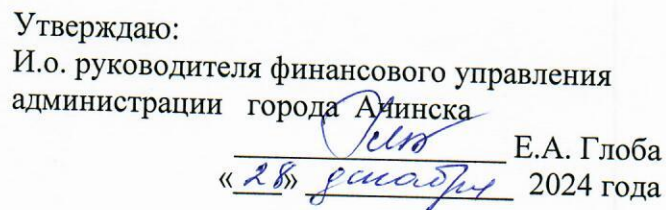 Утверждаю:
И.о. руководителя финансового управления
администрации города Ачинска
Е.А. Глоба
«28» декабря 2024 года